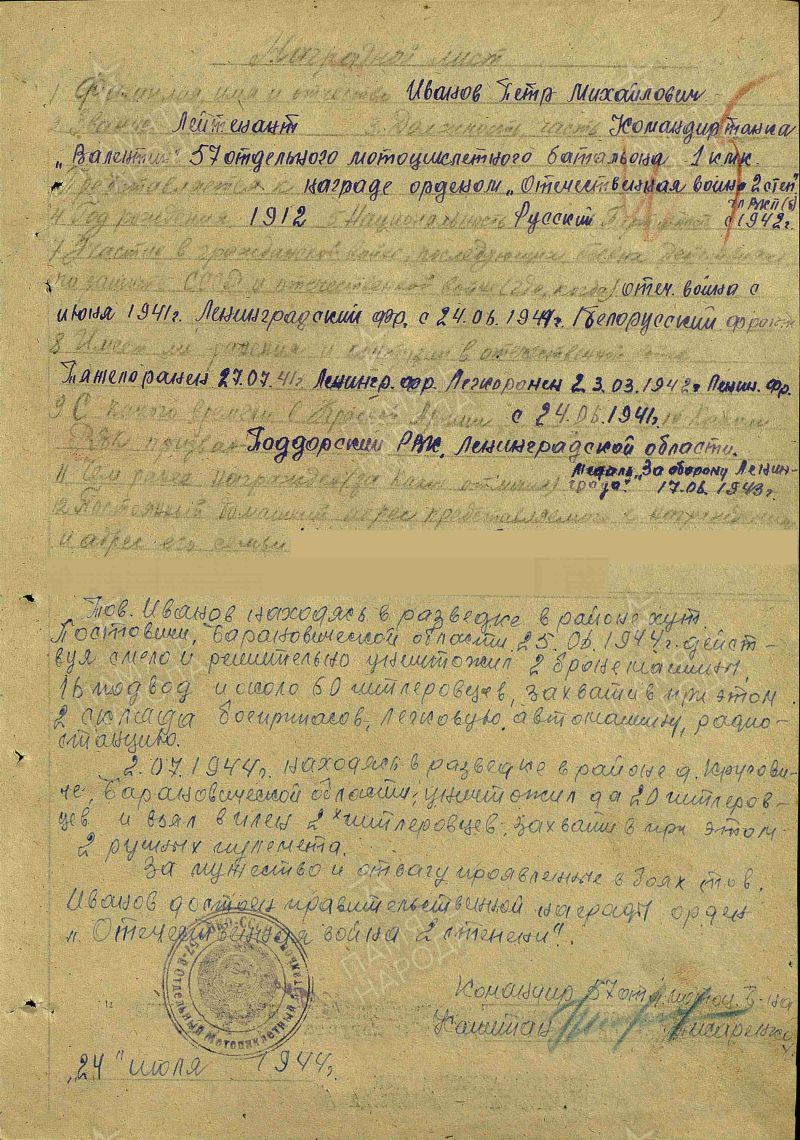 Наградной лист
1 Фамилия имя и отчество Иванов Петр Михайлович
2 Звание Лейтенант 3. Должность, часть Командир танка
„Валентин" 57 отдельного мотоциклетного батальона 1 кмк.
Представляется к награде орденом „Отечественная война 2 степ"
чл ВКП(б)
4 Год рождения 1912 5 Национальность Русский с 1942 г.
7 Участие в гражданской войне, последующих боевых действиях
по защите СССР и отечественной войне (где, когда) отеч. война с
июня 1941 г. Ленинградский фр. с 24.06.1944г. 1 Белорусский фронт
8 Имеет ли ранения и контузии в отечественной войне
Тяжелоранен 27.07.41г. Ленингр. фр. Легкоранен 23.03.1942г Ленин. фр.
9 С какого времени в Красной Армии с 24.06.1941г. 10 Каким
РВК призван Поддорский РВК, Ленинградской области.
11 Чем ранее награжден (за какие отличия) Медаль „За оборону Ленин-
града" 17.06.1943г.
12 Постоянный домашний адрес представляемого к награждению
и адрес его семьи
Тов. Иванов находясь в разведке в районе хут.
Постовичи, Барановической области 25.06.1944 г. дейст-
вуя смело и решительно уничтожил 2 бронемашины,
16 подвод и около 60 гитлеровцев, захватив при этом
2 склада боеприпасов, легковую автомашину, радио-
станцию.
2.07.1944г. находясь в разведке в районе д. Кругови-
че, Барановической области, уничтожил до 20 гитлеров-
цев и взял в плен 2х гитлеровцев, захватив при этом
2 ручных пулемета.
За мужество и отвагу проявленные в боях тов.
Иванов достоен правительственной награды орден
„Отечественная война 2 степени".
57-й Отдельный Мотоциклетный
Командир 57 отд. мотоц. б-на
Капитан Писаренко
„24" июля 1944г.